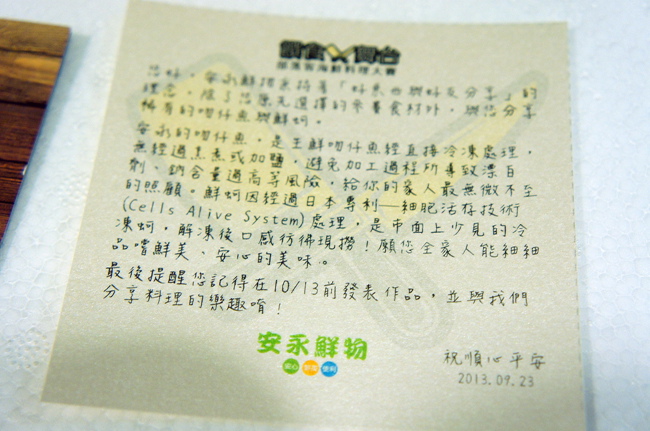 觀食X舞台
部落客海鮮料理大賽
您好,安永鮮物秉持著「好東西與好友分享」的
理念,除了您原先選擇的參賽食材外,與您分享
稀有的吻仔魚與鮮蚵。
安永的吻仔魚,是生鮮吻仔魚經直接冷凍處理,
無經過烹煮或加鹽,避免加工過程所導致漂白
劑、鈉含量過高等風險,給你的家人最無微不至
的照顧。鮮蚵因經過日本專利—細胞活存技術
(Cells Alive System)處理,是市面上少見的冷
凍蚵,解凍後口感彷彿現撈!願您全家人能細細
品嚐鮮美、安心的美味。
最後提醒您記得在10/13前發表作品,並與我們
分享料理的樂趣唷!
安永鮮物
安心 便利
祝順心平安
2013.09.23